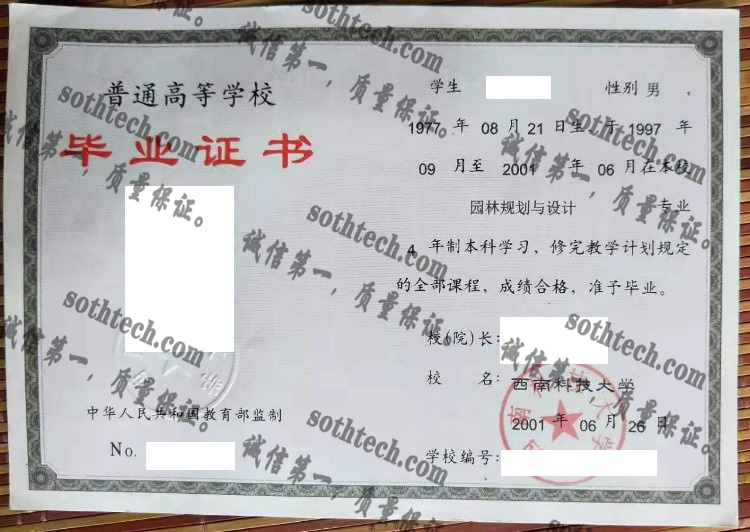 普通高等学校
毕业证书
中华人民共和国教育部监制
No.
学生 性别 男 ，
1977 年 08 月 21 日生，于 1997 年
09 月至 2001 年 06 月在本校
园林规划与设计 专业
4 年制本科学习，修完教学计划规定
的全部课程，成绩合格，准予毕业。
校(院)长:
校 名: 西南科技大学
2001 年 06 月 26 日
学校编号:
sothtech.com
诚信第一，质量保证。
sothtech.com
诚信第一，质量保证。
sothtech.com
诚信第一，质量保证。
sothtech.com
诚信第一，质量保证。
sothtech.com
诚信第一，质量保证。
sothtech.com
诚信第一，质量保证。
sothtech.com
诚信第一，质量保证。